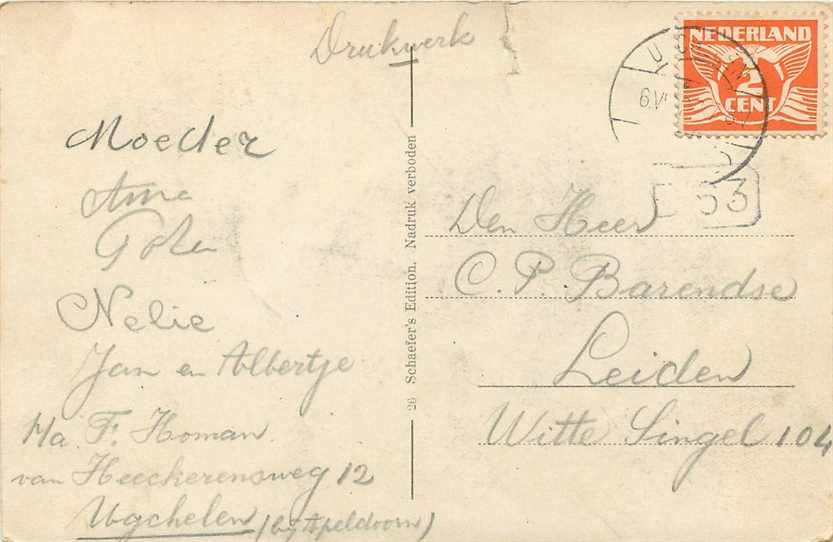 Drukwerk
NEDERLAND
2
CENT
6.VI
Moeder
Nelie
Jan en Albertje
p/a F. Homan
van Heeckerensweg 12
Ugchelen (bij Apeldoorn)
26 Schaefer's Edition. Nadruk verboden
Den Heer
C. P. Barendse
Leiden
Witte Singel 104